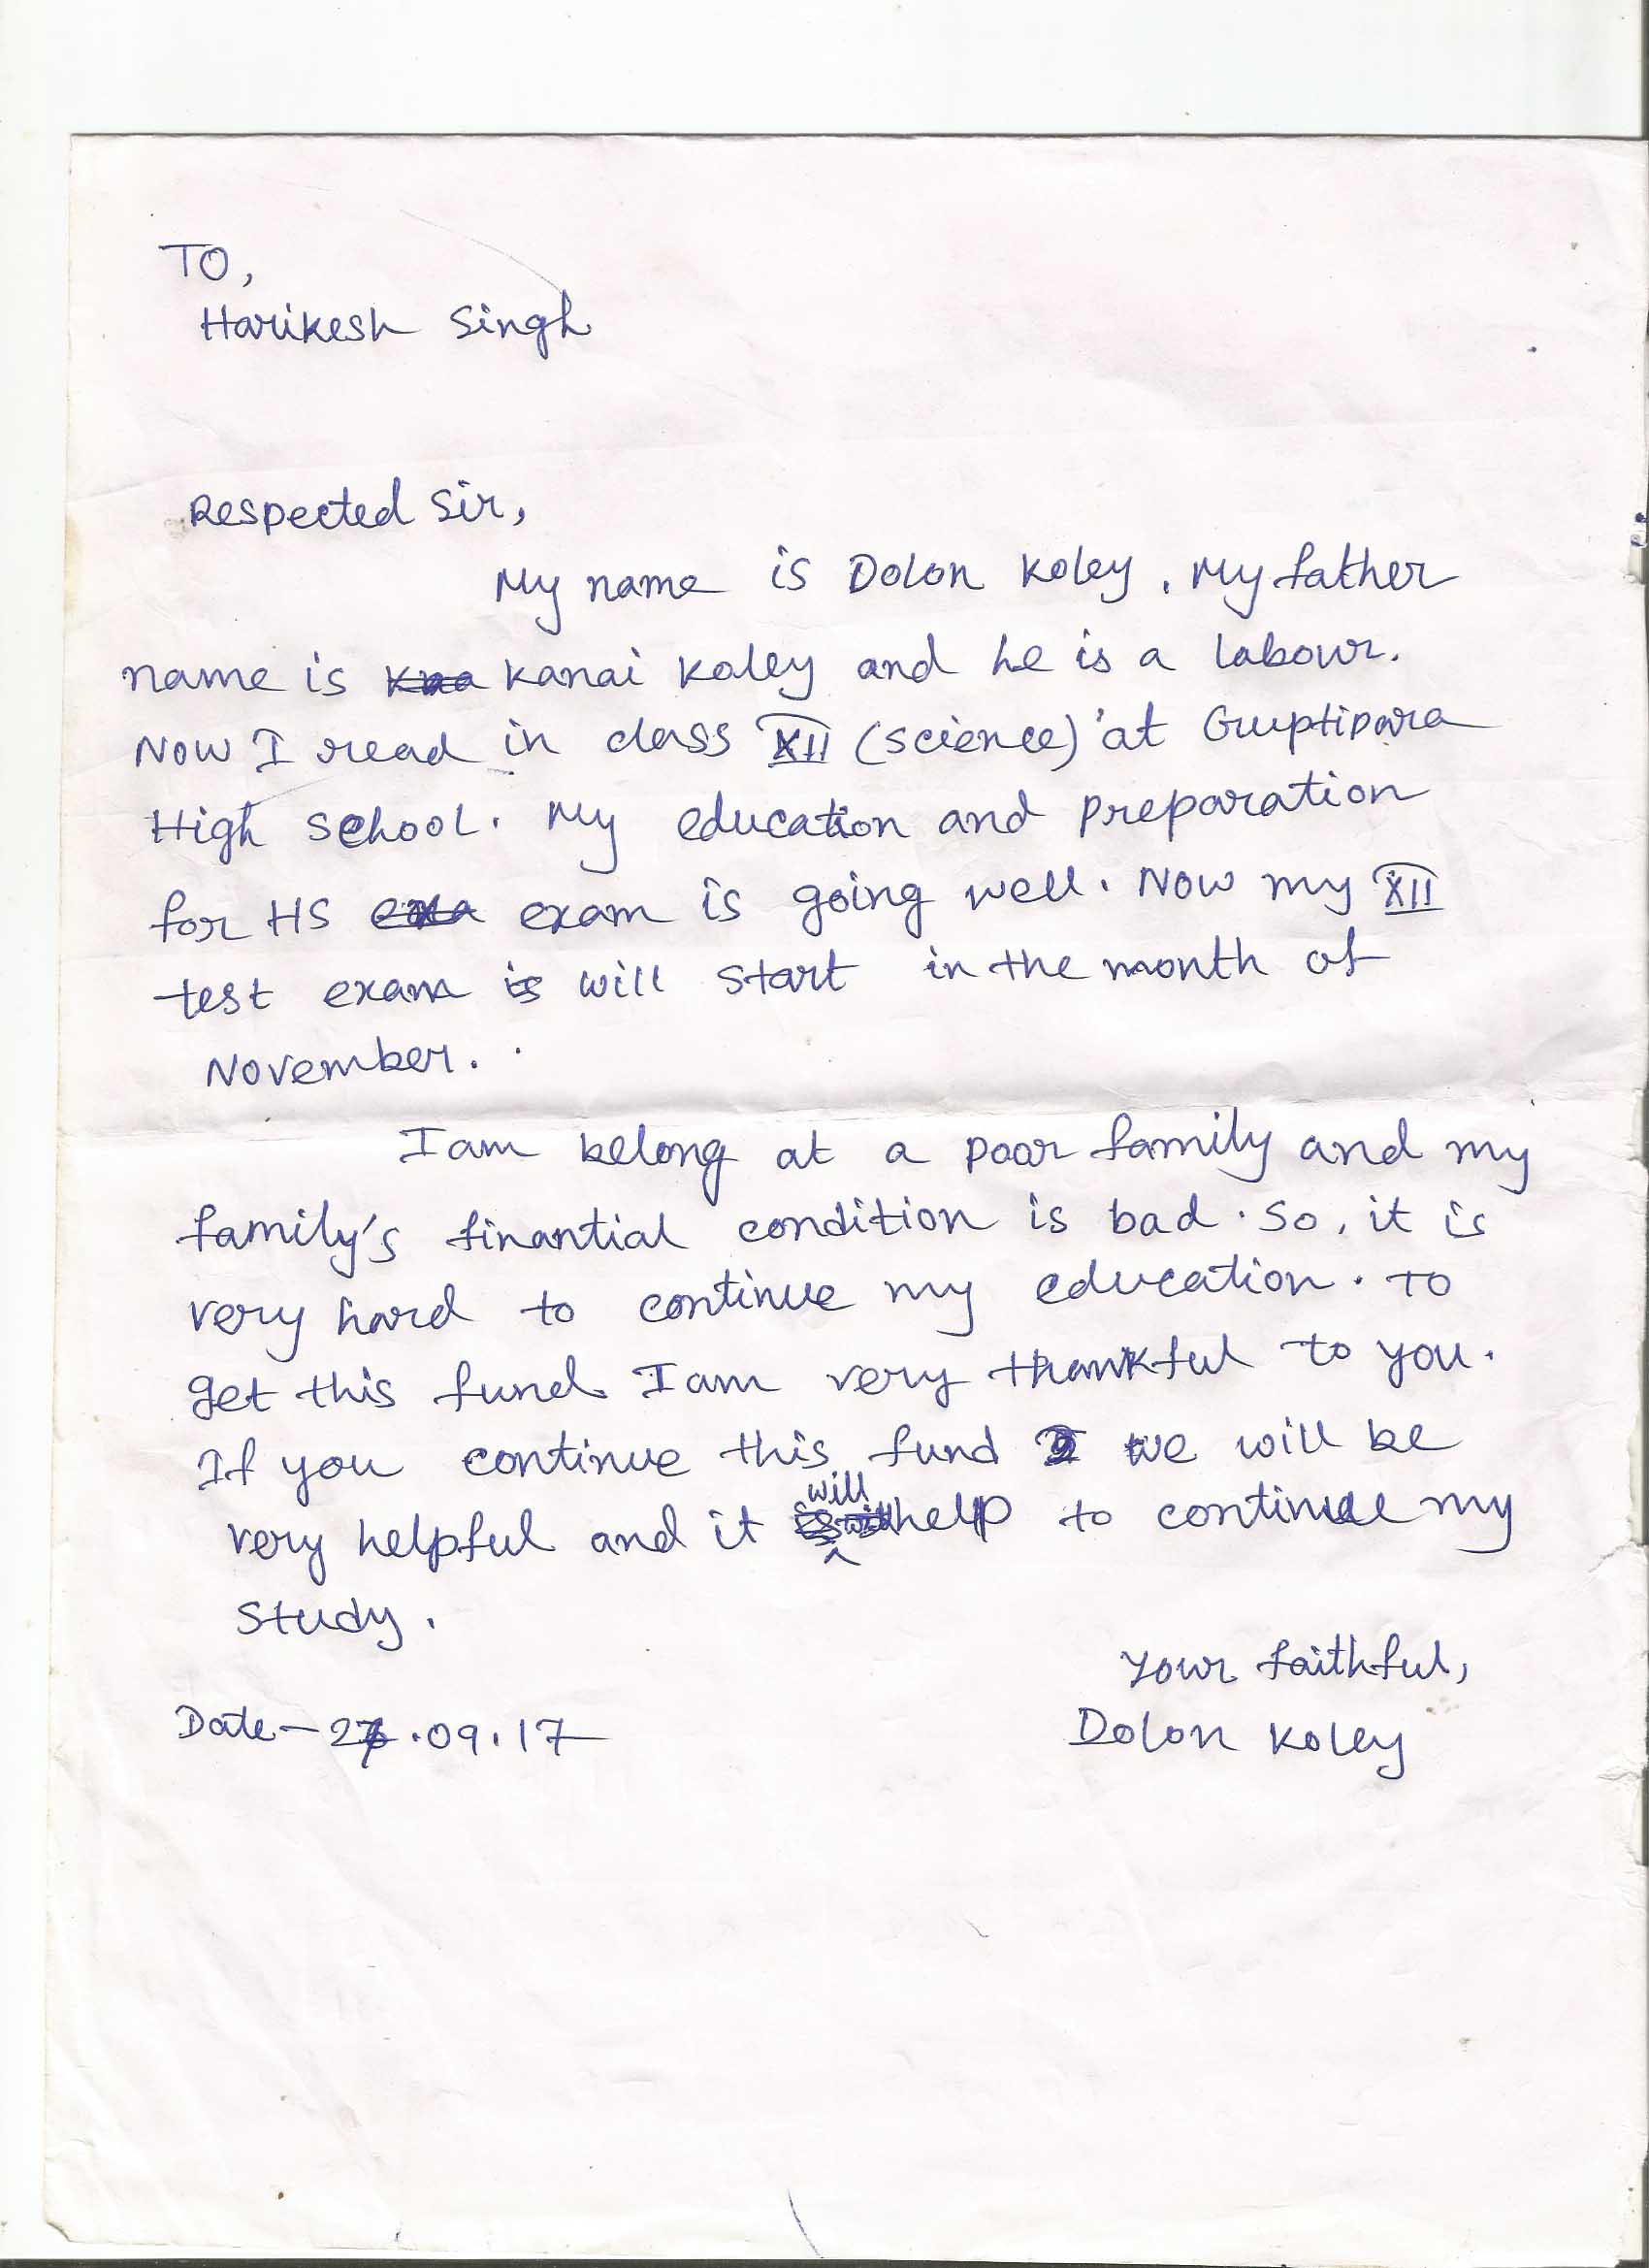 TO,
Harikesh Singh
Respected Sir,
My name is Dolon Koley. My father
name is Kanai Koley and he is a labour.
Now I read in class XII (science) at Guptipara
High School. My education and preparation
for HS exam is going well. Now my XII
test exam will start in the month of
November.
I am belong at a poor family and my
family's finantial condition is bad. So, it is
very hard to continue my education. To
get this fund I am very thankful to you.
If you continue this fund we will be
very helpful and it will help to continue my
study.
Your faithful,
Date - .09.17
Dolon Koley